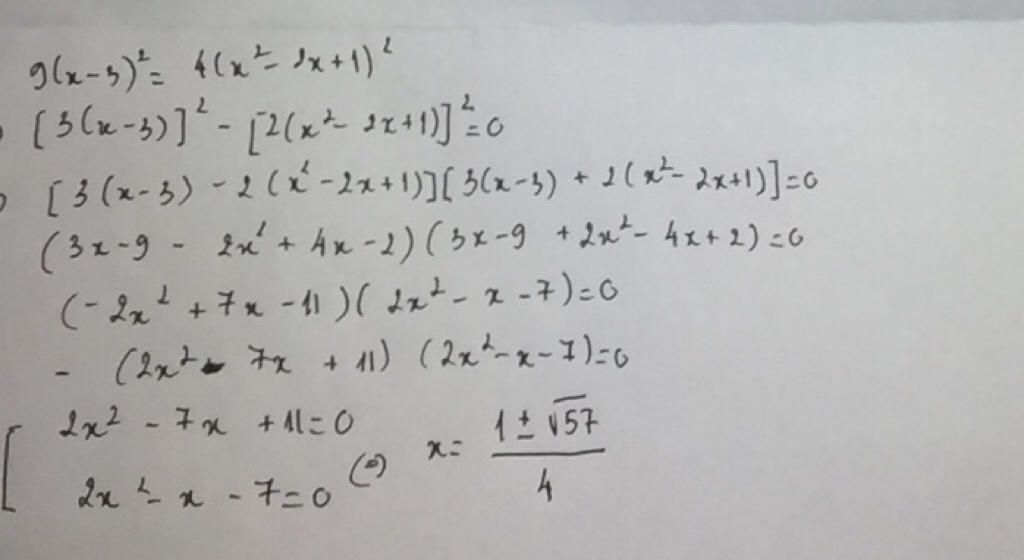 9(x-3)² = 4(x² - 2x+1)²
[3(x-3)]² - [2(x² - 2x+1)]² = 0
[3(x-3) - 2(x² - 2x+1)][3(x-3) + 2(x² - 2x+1)] = 0
(3x-9 - 2x² + 4x - 2)(3x-9 + 2x² - 4x + 2) = 0
(-2x² + 7x - 11)(2x² - x - 7) = 0
- (2x² - 7x + 11)(2x² - x - 7) = 0
2x² - 7x + 11 = 0
2x² - x - 7 = 0 (=) x = (1 ± √57)/4